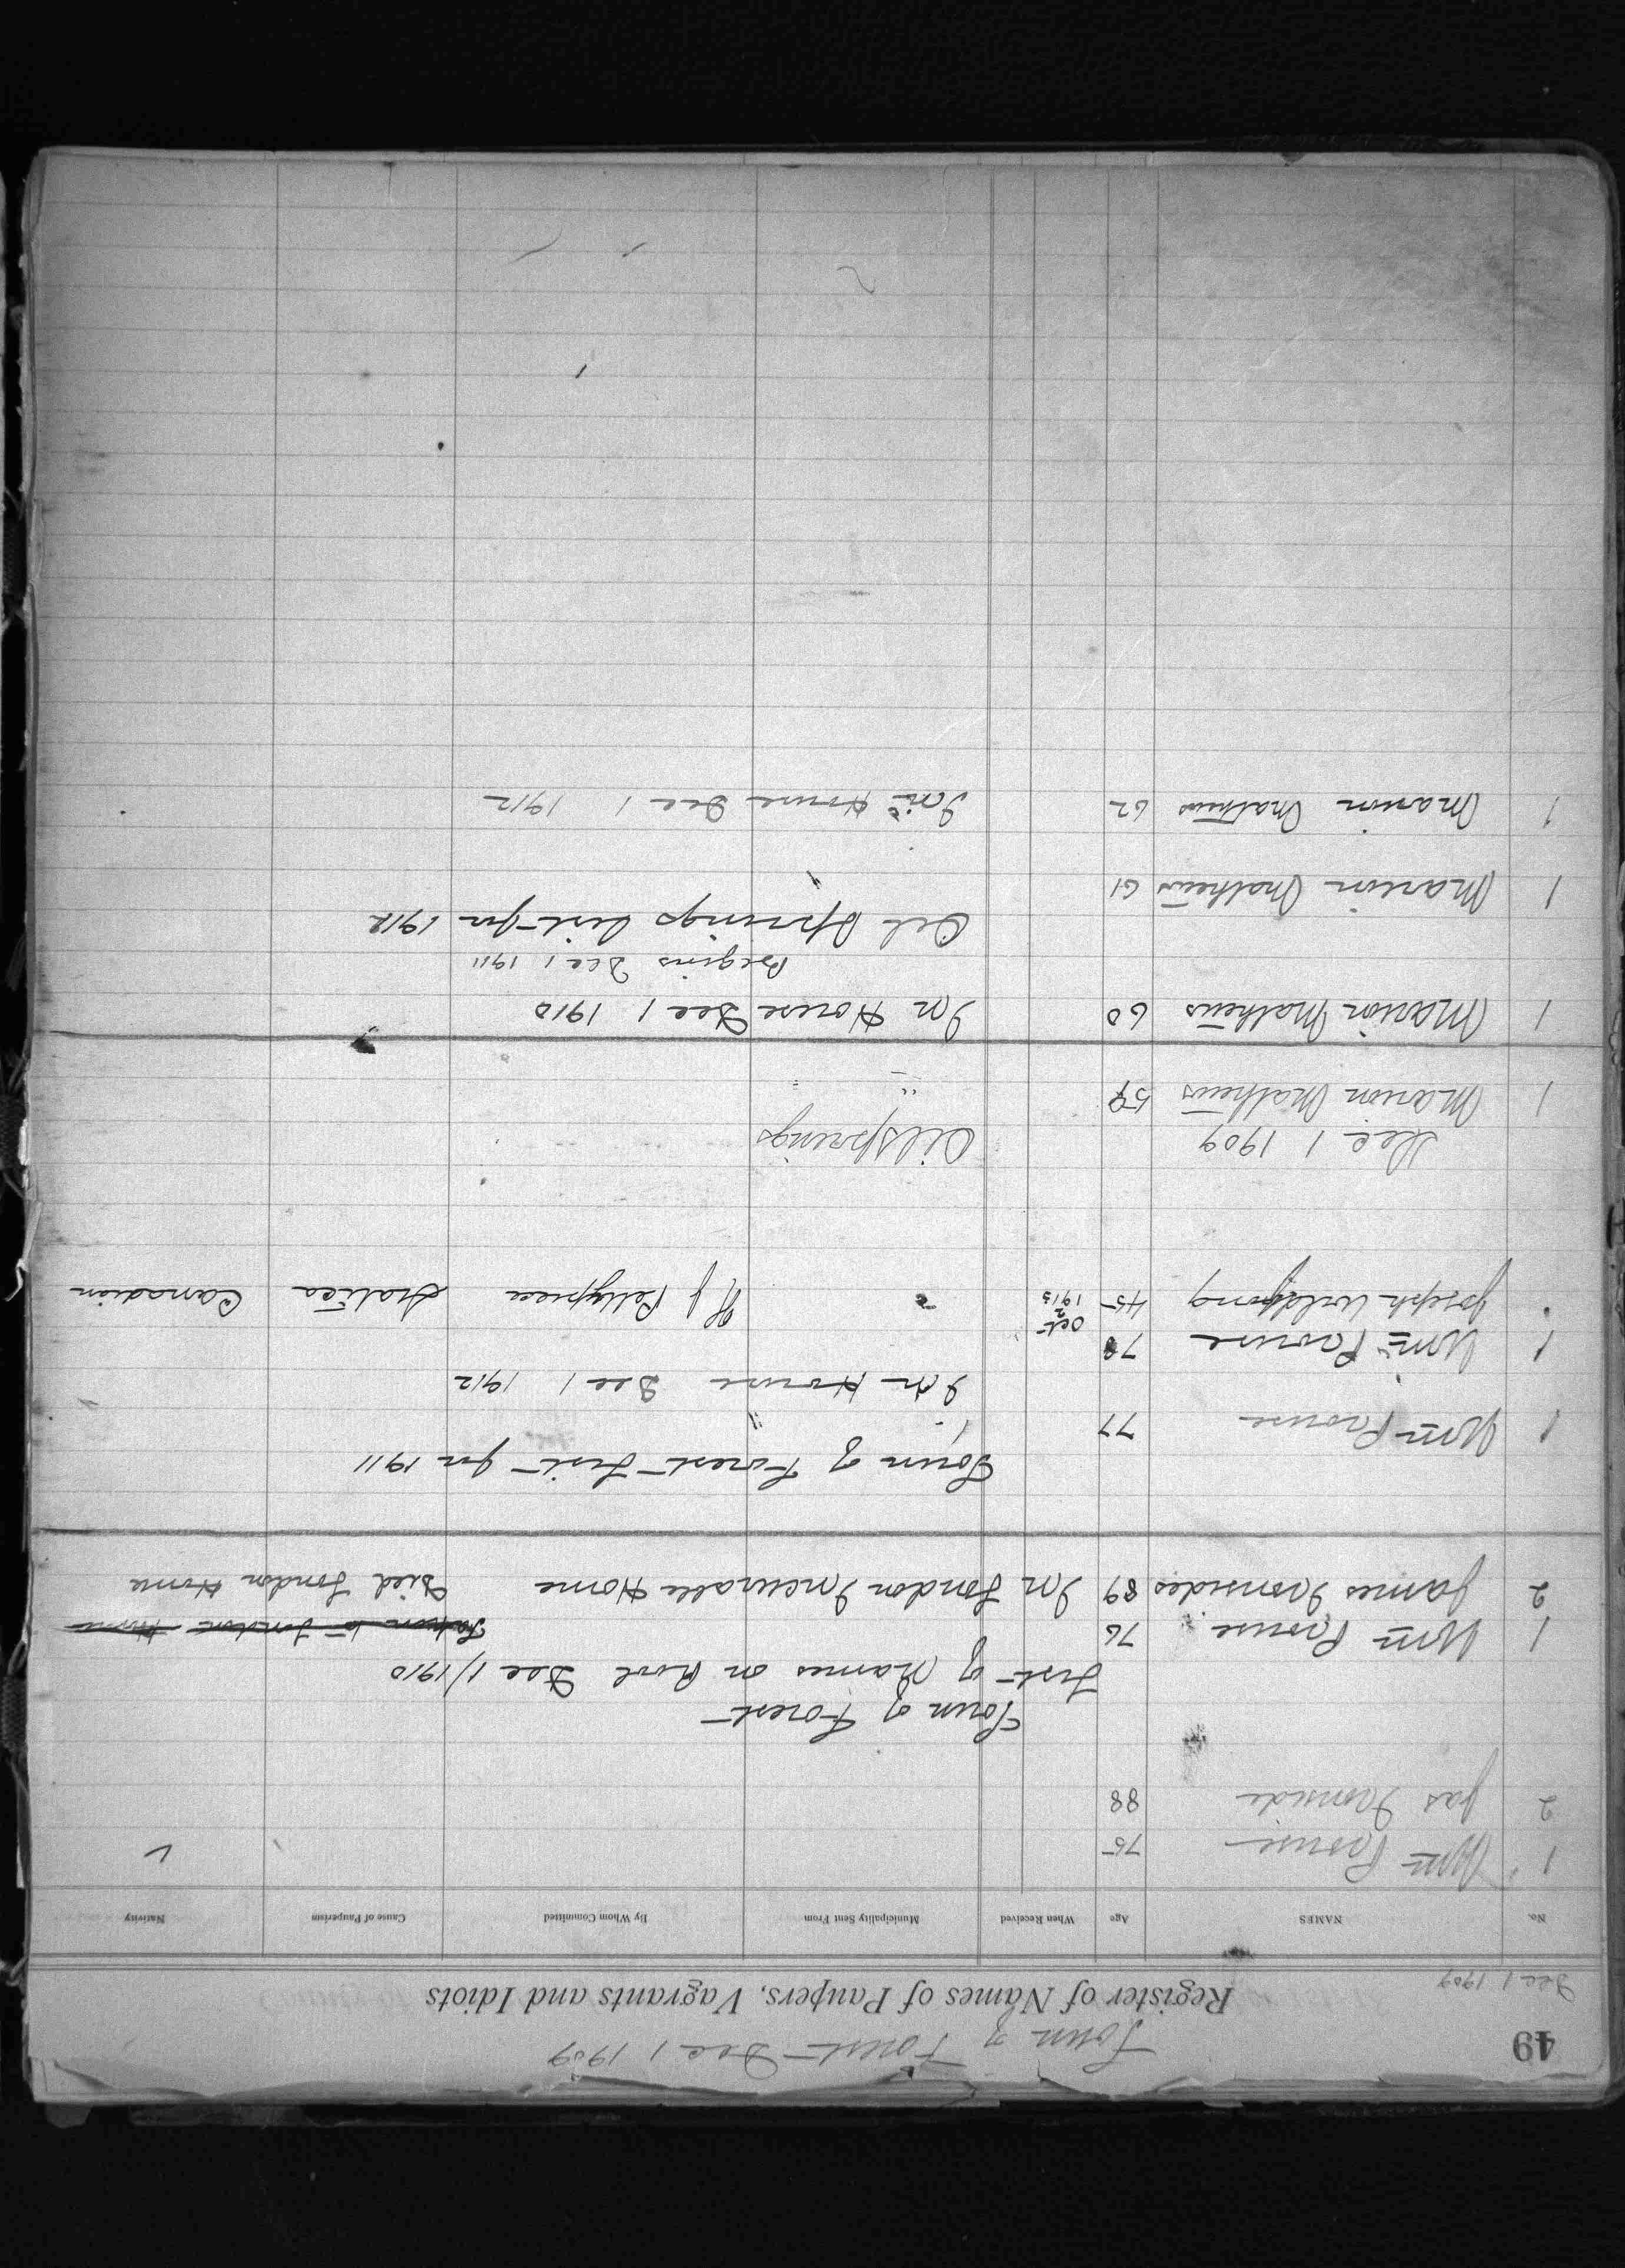 49
Town of Forest Dec 1 1909
Dec 1 1909
Register of Names of Paupers, Vagrants and Idiots
No. NAMES Age When Received Municipality Sent From By Whom Committed Cause of Pauperism Nativity
1 Wm Prouse 75
2 Jas Ironside 88
Town of Forest
List of Names on Roll Dec 1/1910
1 Wm Prouse 76 Taken to London Home
2 James Ironsides 89 In London Incurable Home Died London Home
Town of Forest List for 1911
1 Wm Prouse 77
In House Dec 1 1912
1 Wm Prouse 78
Joseph 45 Oct 2 1913 " H J Pettypiece Canadian
Dec 1 1909 Oilsprings
1 Marion Mathews 59 "
1 Marion Mathews 60 In House Dec 1 1910
Begins Dec 1 1911
Oil Springs List for 1912
1 Marion Mathews 61
1 Marion Mathews 62 In House Dec 1 1912